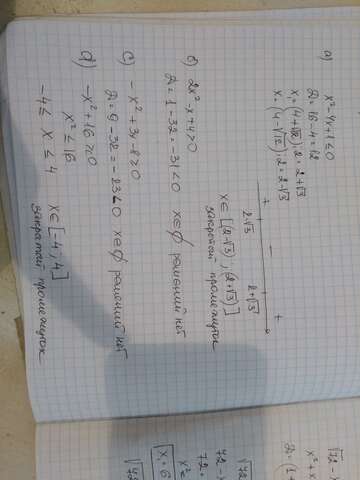 а) x² - 4x + 1 ≤ 0
D = 16 - 4 = 12
x₁ = (4 + √12) : 2 = 2 + √3
x₂ = (4 - √12) : 2 = 2 - √3
+ - +
2-√3 2+√3
x ∈ [(2-√3) ; (2+√3)]
закрытый промежуток
б) 2x² - x + 4 > 0
D = 1 - 32 = -31 < 0 x ∈ ∅ решений нет
c) -x² + 3x - 8 > 0
D = 9 - 32 = -23 < 0 x ∈ ∅ решений нет
d) -x² + 16 ≥ 0
x² ≤ 16
-4 ≤ x ≤ 4 x ∈ [-4 ; 4]
закрытый промежуток